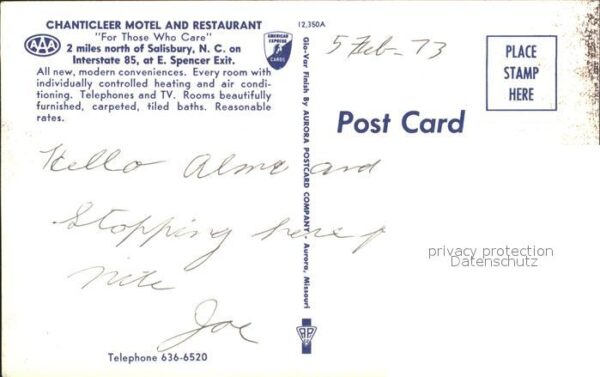 CHANTICLEER MOTEL AND RESTAURANT
"For Those Who Care"
AAA
2 miles north of Salisbury, N. C. on
Interstate 85, at E. Spencer Exit.
AMERICAN EXPRESS CARDS
All new, modern conveniences. Every room with
individually controlled heating and air condi-
tioning. Telephones and TV. Rooms beautifully
furnished, carpeted, tiled baths. Reasonable
rates.
12,350A
Glo-Var Finish By AURORA POSTCARD COMPANY, Aurora, Missouri
5 Feb- 73
PLACE
STAMP
HERE
Post Card
Hello Alma and
Stopping here
nite
Joe
privacy protection
Datenschutz
Telephone 636-6520